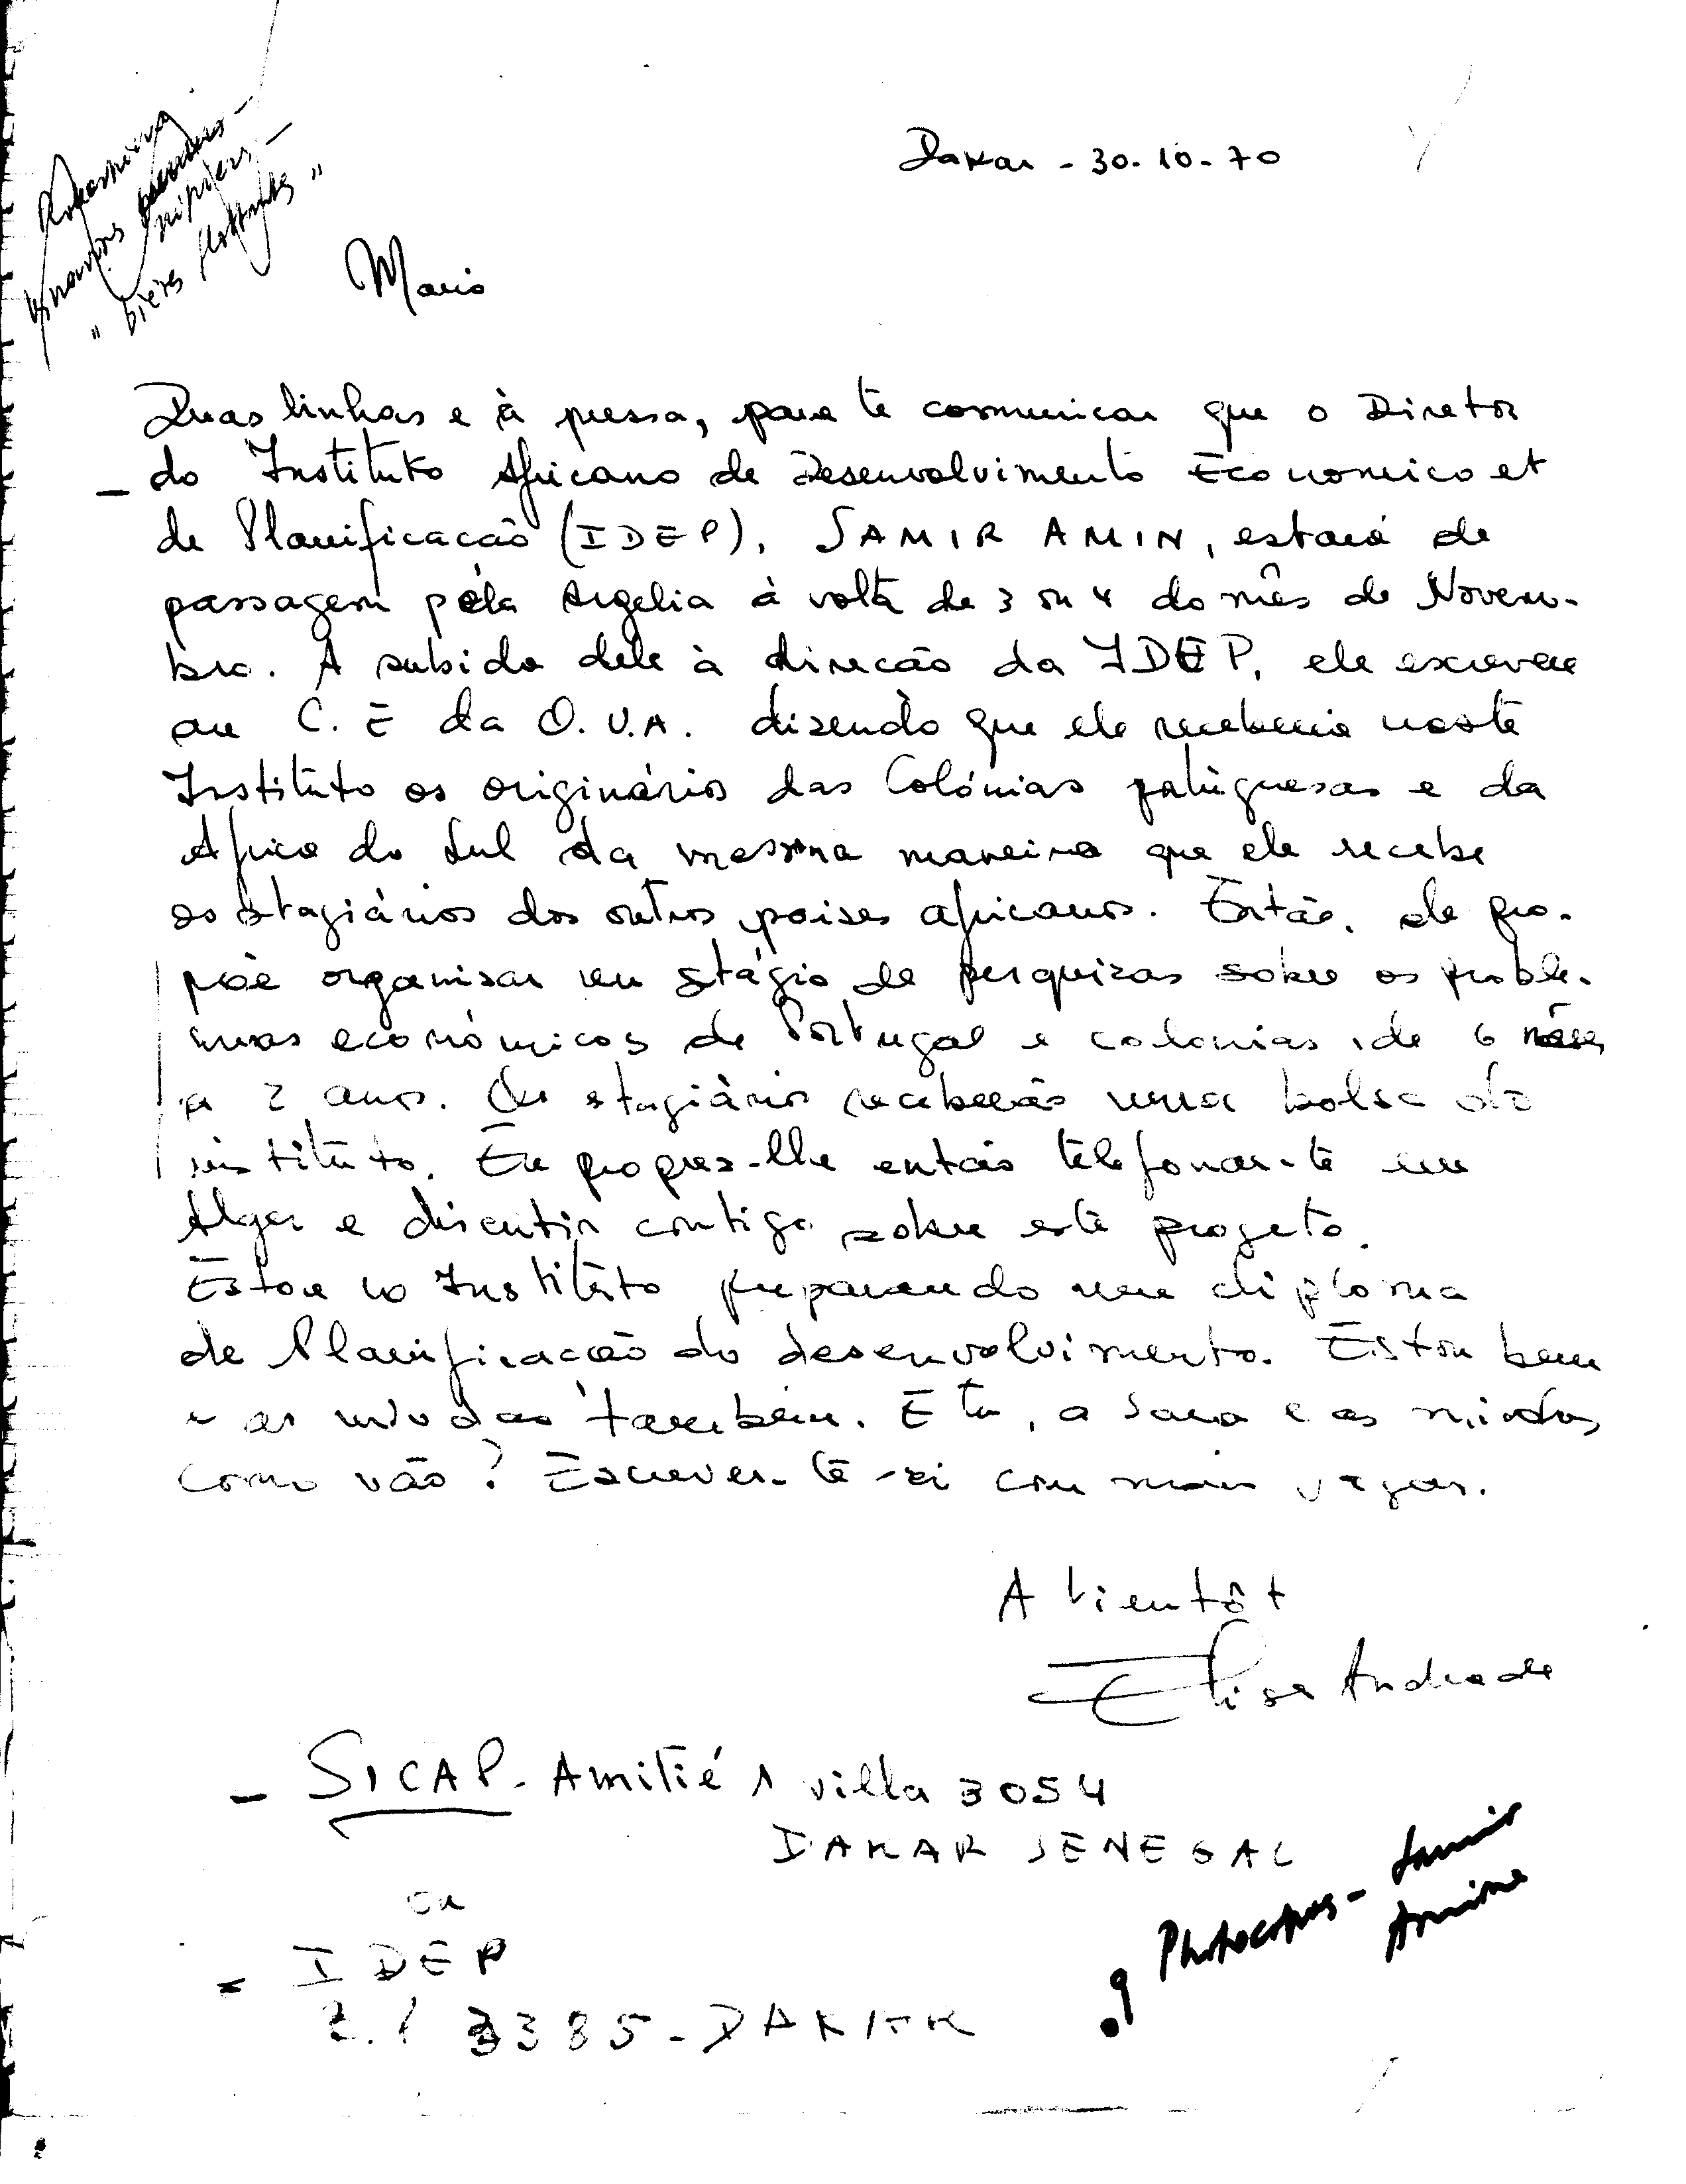 Dakar - 30.10-70
" biens flottants "
Mario
Duas linhas e à pressa, para te comunicar que o Diretor
do Instituto Africano de Desenvolvimento Economico et
de Planificacão (IDEP), SAMIR AMIN, estará de
passagem pela Argelia à volta de 3 ou 4 do mês de Novem-
bro. A subida dele à direcão da IDEP, ele escreveu
au C. E da O.U.A. dizendo que ele receberia neste
Instituto os originários das Colónias portuguesas e da
Africa do Sul da mesma maneira que ele recebe
os stagiários dos outros paises africanos. Então, ele pro-
põe organisar um stágio de pesquizas sobre os proble-
mas económicos de Portugal e colonias, de 6 mêses
a 2 anos. Os stagiários receberão uma bolsa do
instituto. Eu propus-lhe então telefonar-te em
Alger e discutir contigo sobre este progeto.
Estou no Instituto preparando um diploma
de Planificacão do desenvolvimento. Estou bem
e as miudas também. E tu, a Sara e as miudas,
como vão? Escrever-te-ei com mais vagar.
A bientôt
Elisa Andrade
- SICAP. Amitié 1 villa 3054
DAKAR SENEGAL
ou
- IDEP
3385 - DAKAR
Photocopies - Samir
Amine